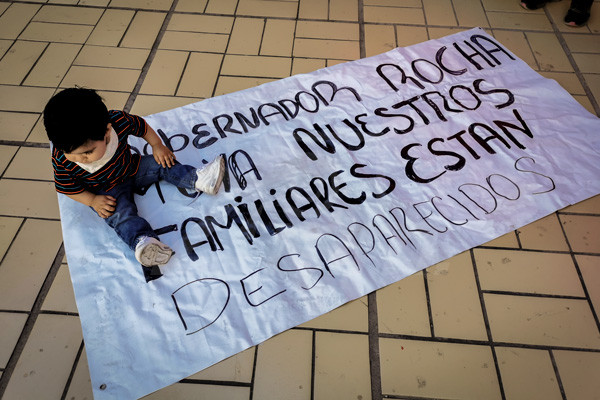 GOBERNADOR ROCHA
NUESTROS
FAMILIARES ESTAN
DESAPARECIDOS